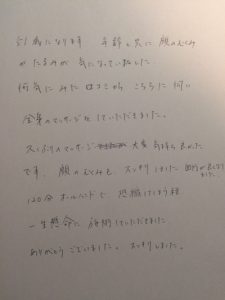 51歳になります 年齢と共に 顔のむくみ
やたるみが 気になっていました。
何気にみた口コミから こちらに伺い
全身のマッサージをしていただきました。
久しぶりのマッサージ 大変 気持ち良かった
です。顔のむくみも スッキリしました
血行が良くなりました。
120分 オールハンドで 恐縮してしまう程
一生懸命に 施術していただきました。
ありがとうございました。スッキリしました。